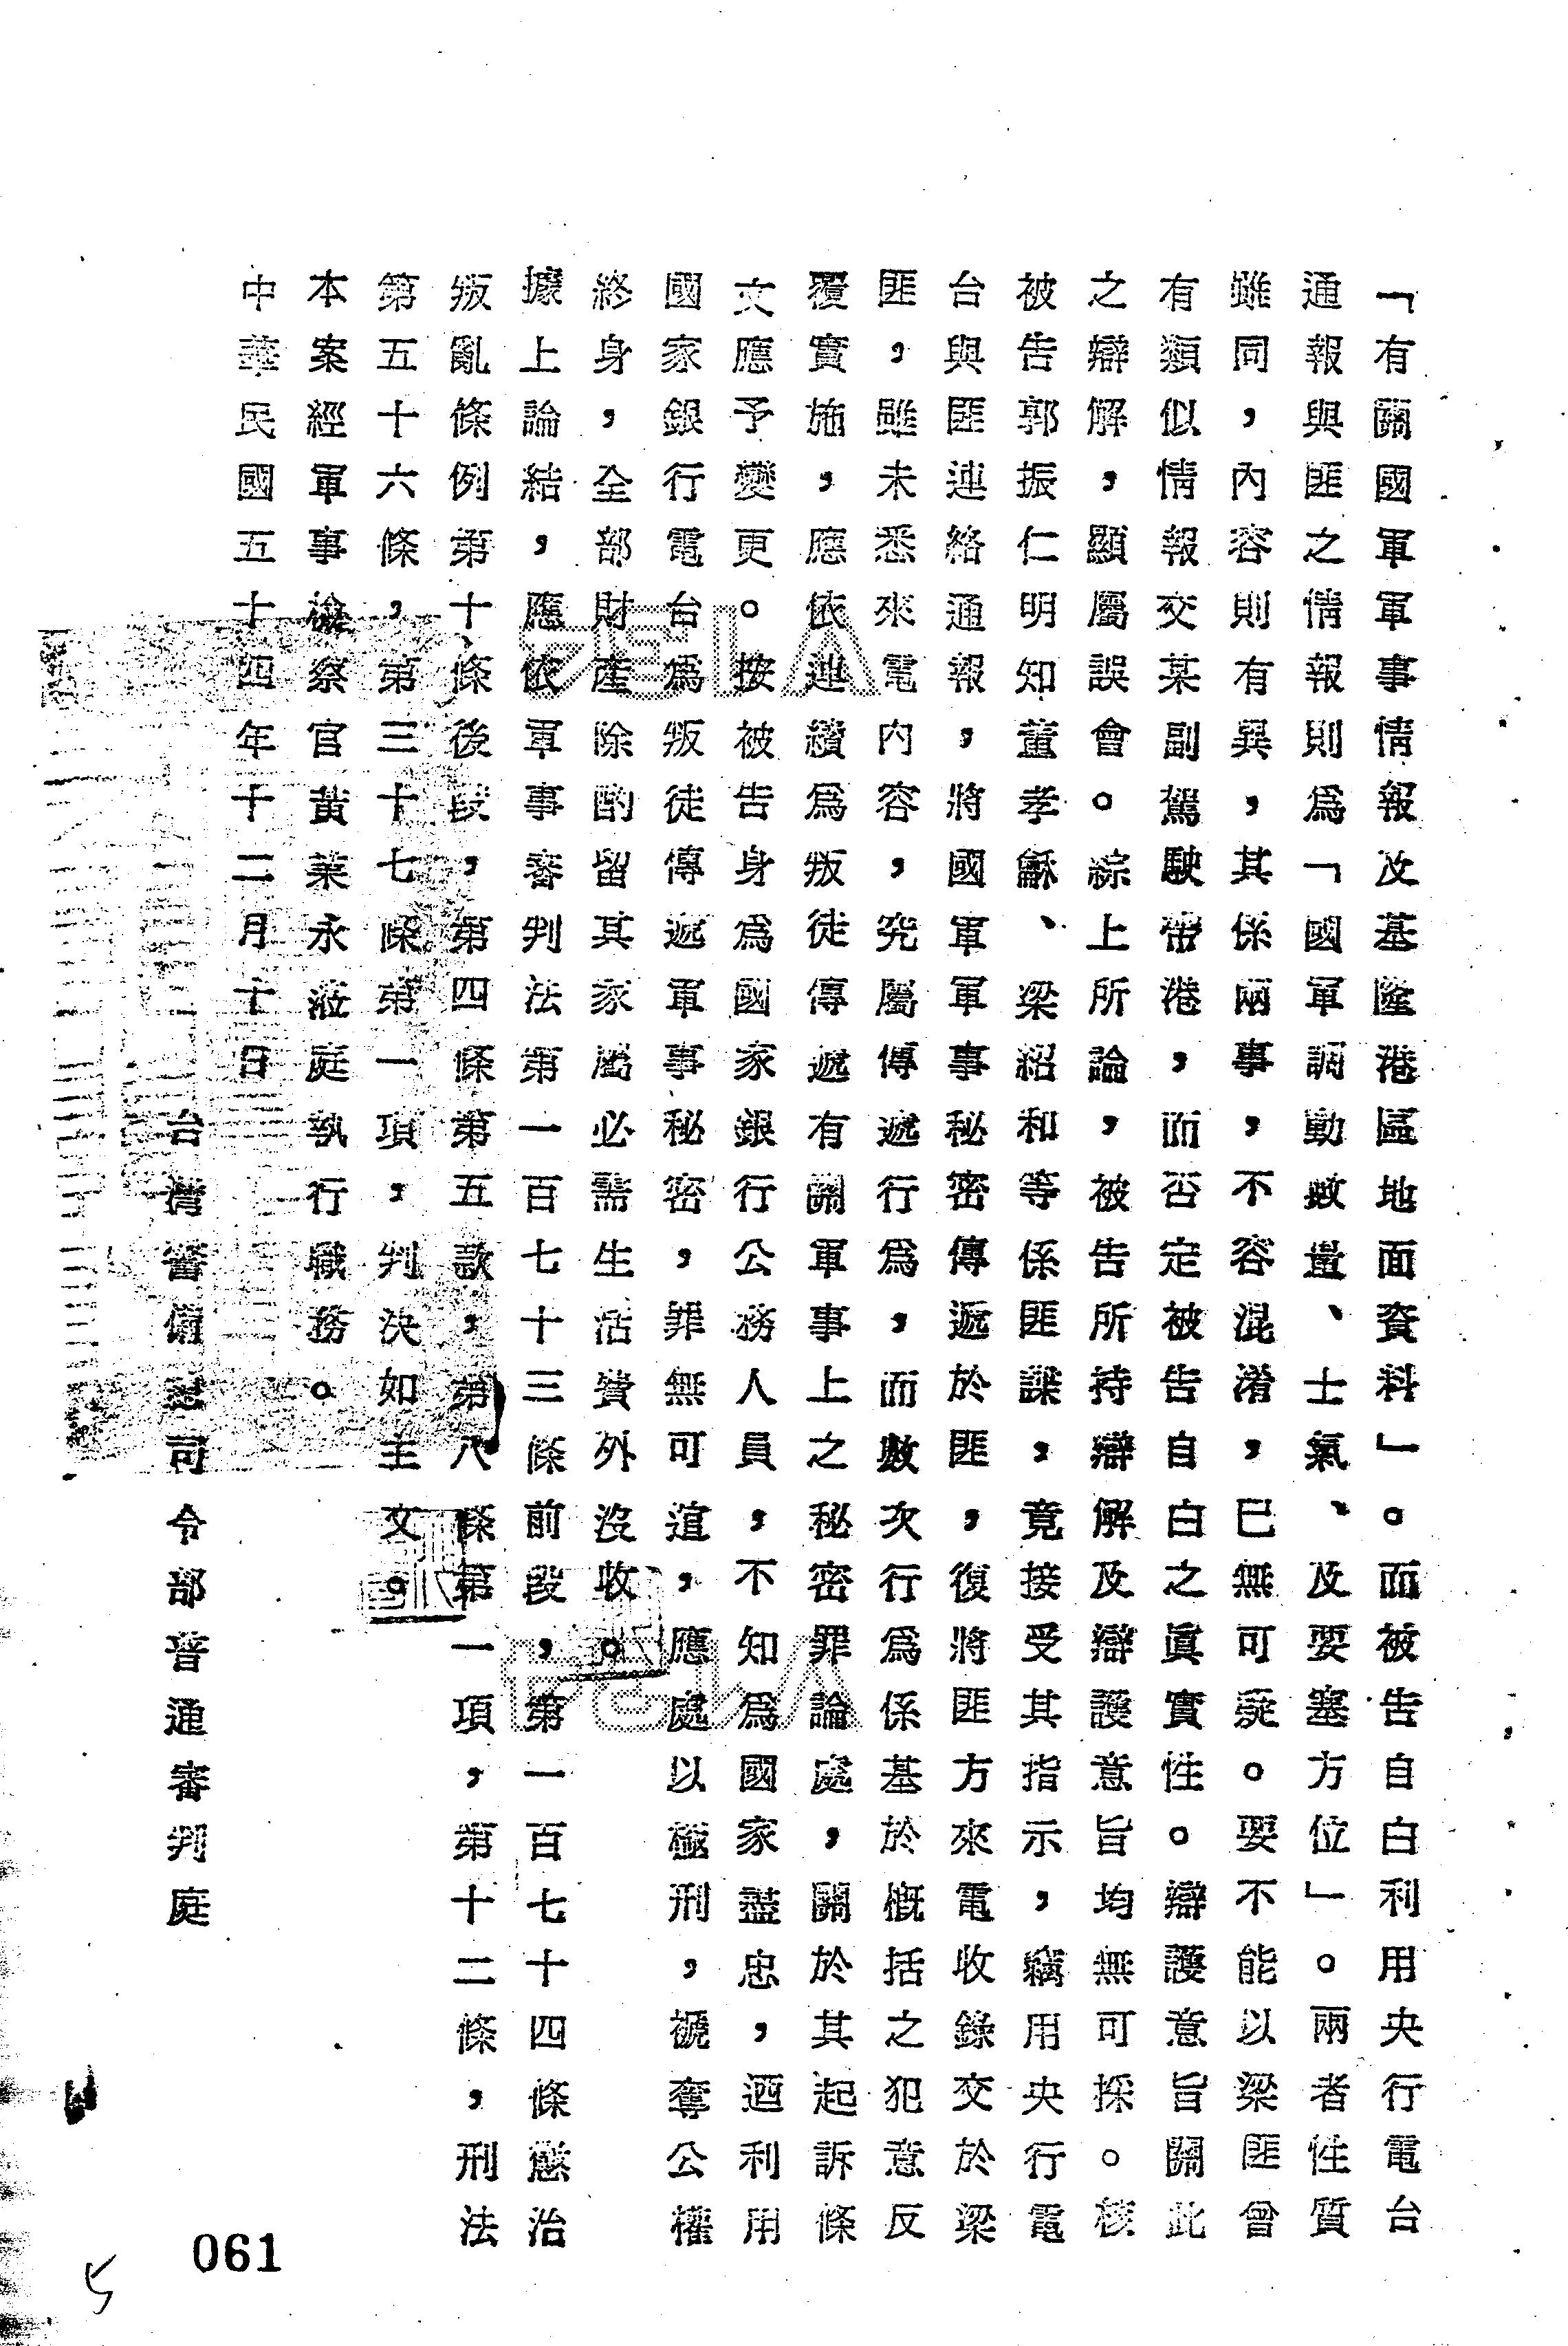 「有關國軍軍事情報及基隆港區地面資料」。而被告自白利用央行電台
通報與匪之情報則爲「國軍調動數量、士氣、及要塞方位」。兩者性質
雖同，內容則有異，其係兩事，不容混淆，已無可疑。要不能以梁匪曾
有類似情報交某副駕駛帶港，而否定被告自白之眞實性。辯護意旨關此
之辯解，顯屬誤會。綜上所論，被告所持辯解及辯護意旨，均無可採。核
被告郭振仁明知董孝穌、梁紹和等係匪諜，竟接受其指示，竊用央行電
台與匪連絡通報，將國軍軍事秘密傳遞於匪，復將匪方來電，收錄交於梁
匪，雖未悉來電內容，究屬傳遞行爲，而數次行爲係基於概括之犯意反
覆實施，應依連續爲叛徒傳遞有關軍事上之秘密罪論處，關於其起訴條
文應予變更。按被告身爲國家銀行公務人員，不知爲國家盡忠，迺利用
國家銀行電台爲叛徒傳遞軍事秘密，罪無可逭，應處以極刑，褫奪公權
終身，全部財產除酌留其家屬必需生活費外沒收。
據上論結，應依軍事審判法第一百七十三條前段，第一百七十四條懲治
叛亂條例第十條後段，第四條第五款，第八條第一項，第十二條，刑法
第五十六條，第三十七條第一項，判決如主文。
本案經軍事檢察官黃業永蒞庭執行職務。
中華民國五十四年十二月十日
台灣警備總司令部普通審判庭
061